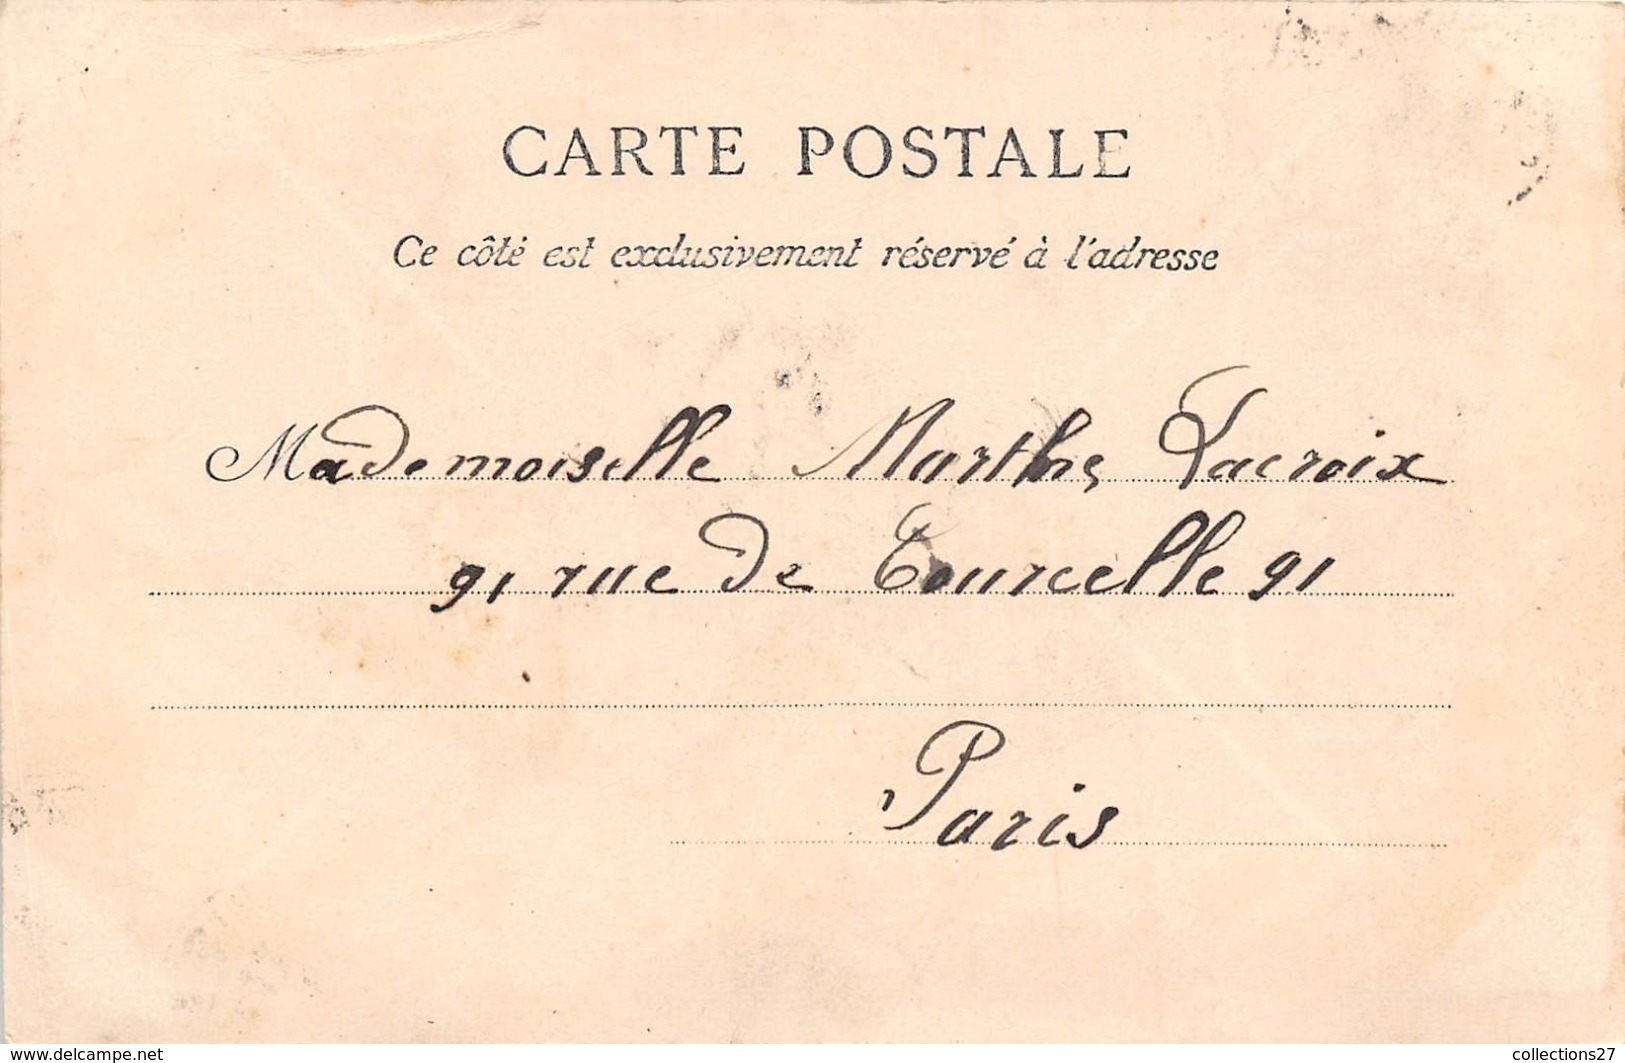 CARTE POSTALE
Ce côté est exclusivement réservé à l'adresse
Mademoiselle Marthe Lacroix
91 rue de Courcelle 91
Paris
www.delcampe.net
collections27